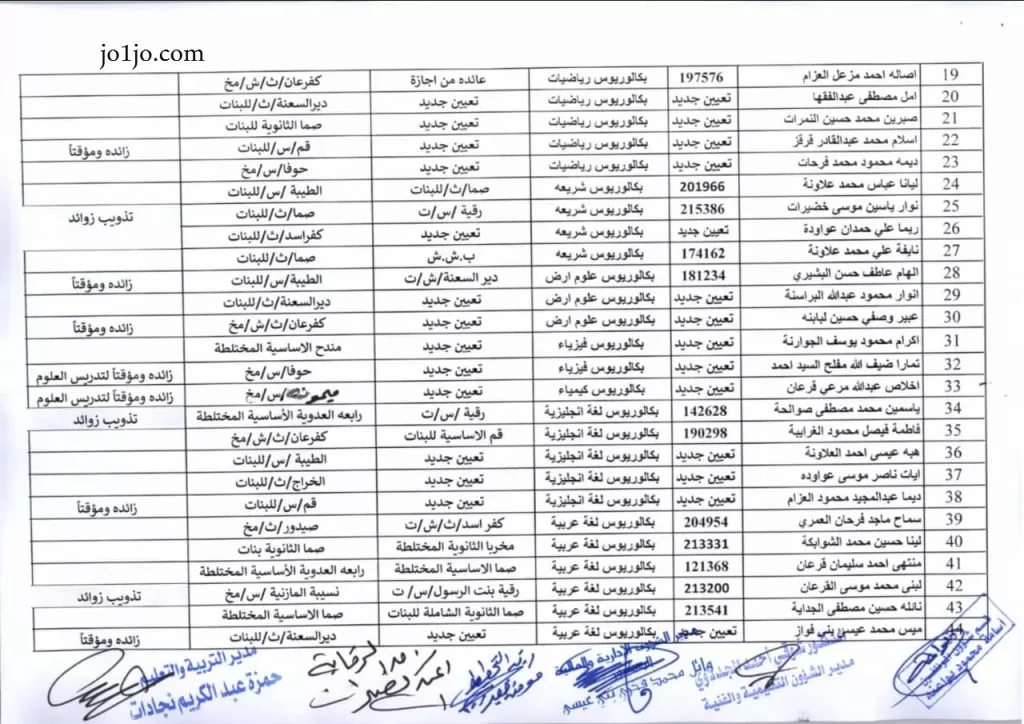 jo1jo.com
19 اصاله احمد مزعل العزام 197576 بكالوريوس رياضيات عائده من اجازة كفرعان/ث/ش/مخ
20 امل مصطفى عبدالفقها تعيين جديد بكالوريوس رياضيات تعيين جديد ديرالسعنة/ث/للبنات
21 صبرين محمد حسين النمرات تعيين جديد بكالوريوس رياضيات تعيين جديد صما الثانوية للبنات
22 اسلام محمد عبدالقادر قرقز تعيين جديد بكالوريوس رياضيات تعيين جديد قم/س/للبنات زائده ومؤقتاً
23 ديمه محمود محمد فرحات تعيين جديد بكالوريوس رياضيات تعيين جديد حوفا/س/مخ
24 ليانا عباس محمد علاونة 201966 بكالوريوس شريعه صما/ث/للبنات الطيبة /س/للبنات
25 نوار ياسين موسى خضيرات 215386 بكالوريوس شريعه رقية /س/ت صما/ث/للبنات تذويب زوائد
26 ريما علي حمدان عواودة تعيين جديد بكالوريوس شريعه تعيين جديد كفراسد/ث/للبنات
27 نايفة علي محمد علاونة 174162 بكالوريوس شريعه ب.ش.ش صما/ث/للبنات
28 الهام عاطف حسن البشيري 181234 بكالوريوس علوم ارض دير السعنة/ش/ت الطيبة/س/للبنات زائده ومؤقتاً
29 انوار محمود عبدالله البراسنة تعيين جديد بكالوريوس علوم ارض تعيين جديد ديرالسعنة/ث/للبنات
30 عبير وصفي حسين لبابنه تعيين جديد بكالوريوس علوم ارض تعيين جديد كفرعان/ث/ش/مخ زائده ومؤقتاً
31 اكرام محمود يوسف الجوارنة تعيين جديد بكالوريوس فيزياء تعيين جديد مندح الاساسية المختلطة
32 تمارا ضيف الله مفلح السيد احمد تعيين جديد بكالوريوس فيزياء تعيين جديد حوفا/س/مخ زائده ومؤقتاً لتدريس العلوم
33 اخلاص عبدالله مرعي قرعان تعيين جديد بكالوريوس كيمياء تعيين جديد ميمونه/س/مخ زائده ومؤقتاً لتدريس العلوم
34 ياسمين محمد مصطفى صوالحة 142628 بكالوريوس لغة انجليزية رقية /س/ت رابعه العدوية الأساسية المختلطة تذويب زوائد
35 فاطمة فيصل محمود الغرايبة 190298 بكالوريوس لغة انجليزية قم الاساسية للبنات كفرعان/ث/ش/مخ
36 هبه عيسى احمد العلاونة تعيين جديد بكالوريوس لغة انجليزية تعيين جديد الطيبة /س/للبنات
37 ايات ناصر موسى عواوده تعيين جديد بكالوريوس لغة انجليزية تعيين جديد الخراج/ث/للبنات
38 ديما عبدالمجيد محمود العزام تعيين جديد بكالوريوس لغة انجليزية تعيين جديد قم/س/للبنات زائده ومؤقتاً
39 سماح ماجد فرحان العمري 204954 بكالوريوس لغة عربية كفر اسد/ث/ش/ت صيدور/ث/مخ
40 لينا حسين محمد الشوابكة 213331 بكالوريوس لغة عربية مخربا الثانوية المختلطة صما الثانوية بنات
41 منتهى احمد سليمان قرعان 121368 بكالوريوس لغة عربية صما الاساسية المختلطة رابعه العدوية الأساسية المختلطة
42 لبنى محمد موسى القرعان 213200 بكالوريوس لغة عربية رقية بنت الرسول/س/ ت نسيبة المازنية /س/مخ تذويب زوائد
43 نائله حسين مصطفى الجداية 213541 بكالوريوس لغة عربية صما الثانوية الشاملة للبنات صما الاساسية المختلطة
44 ميس محمد عيسى بني فواز تعيين جديد بكالوريوس لغة عربية تعيين جديد ديرالسعنة/ث/للبنات زائده ومؤقتاً
مدير الشؤون التعليمية والفنية
مدير الشؤون الإدارية والمالية
مدير التربية والتعليم
حمزة عبد الكريم نجادات